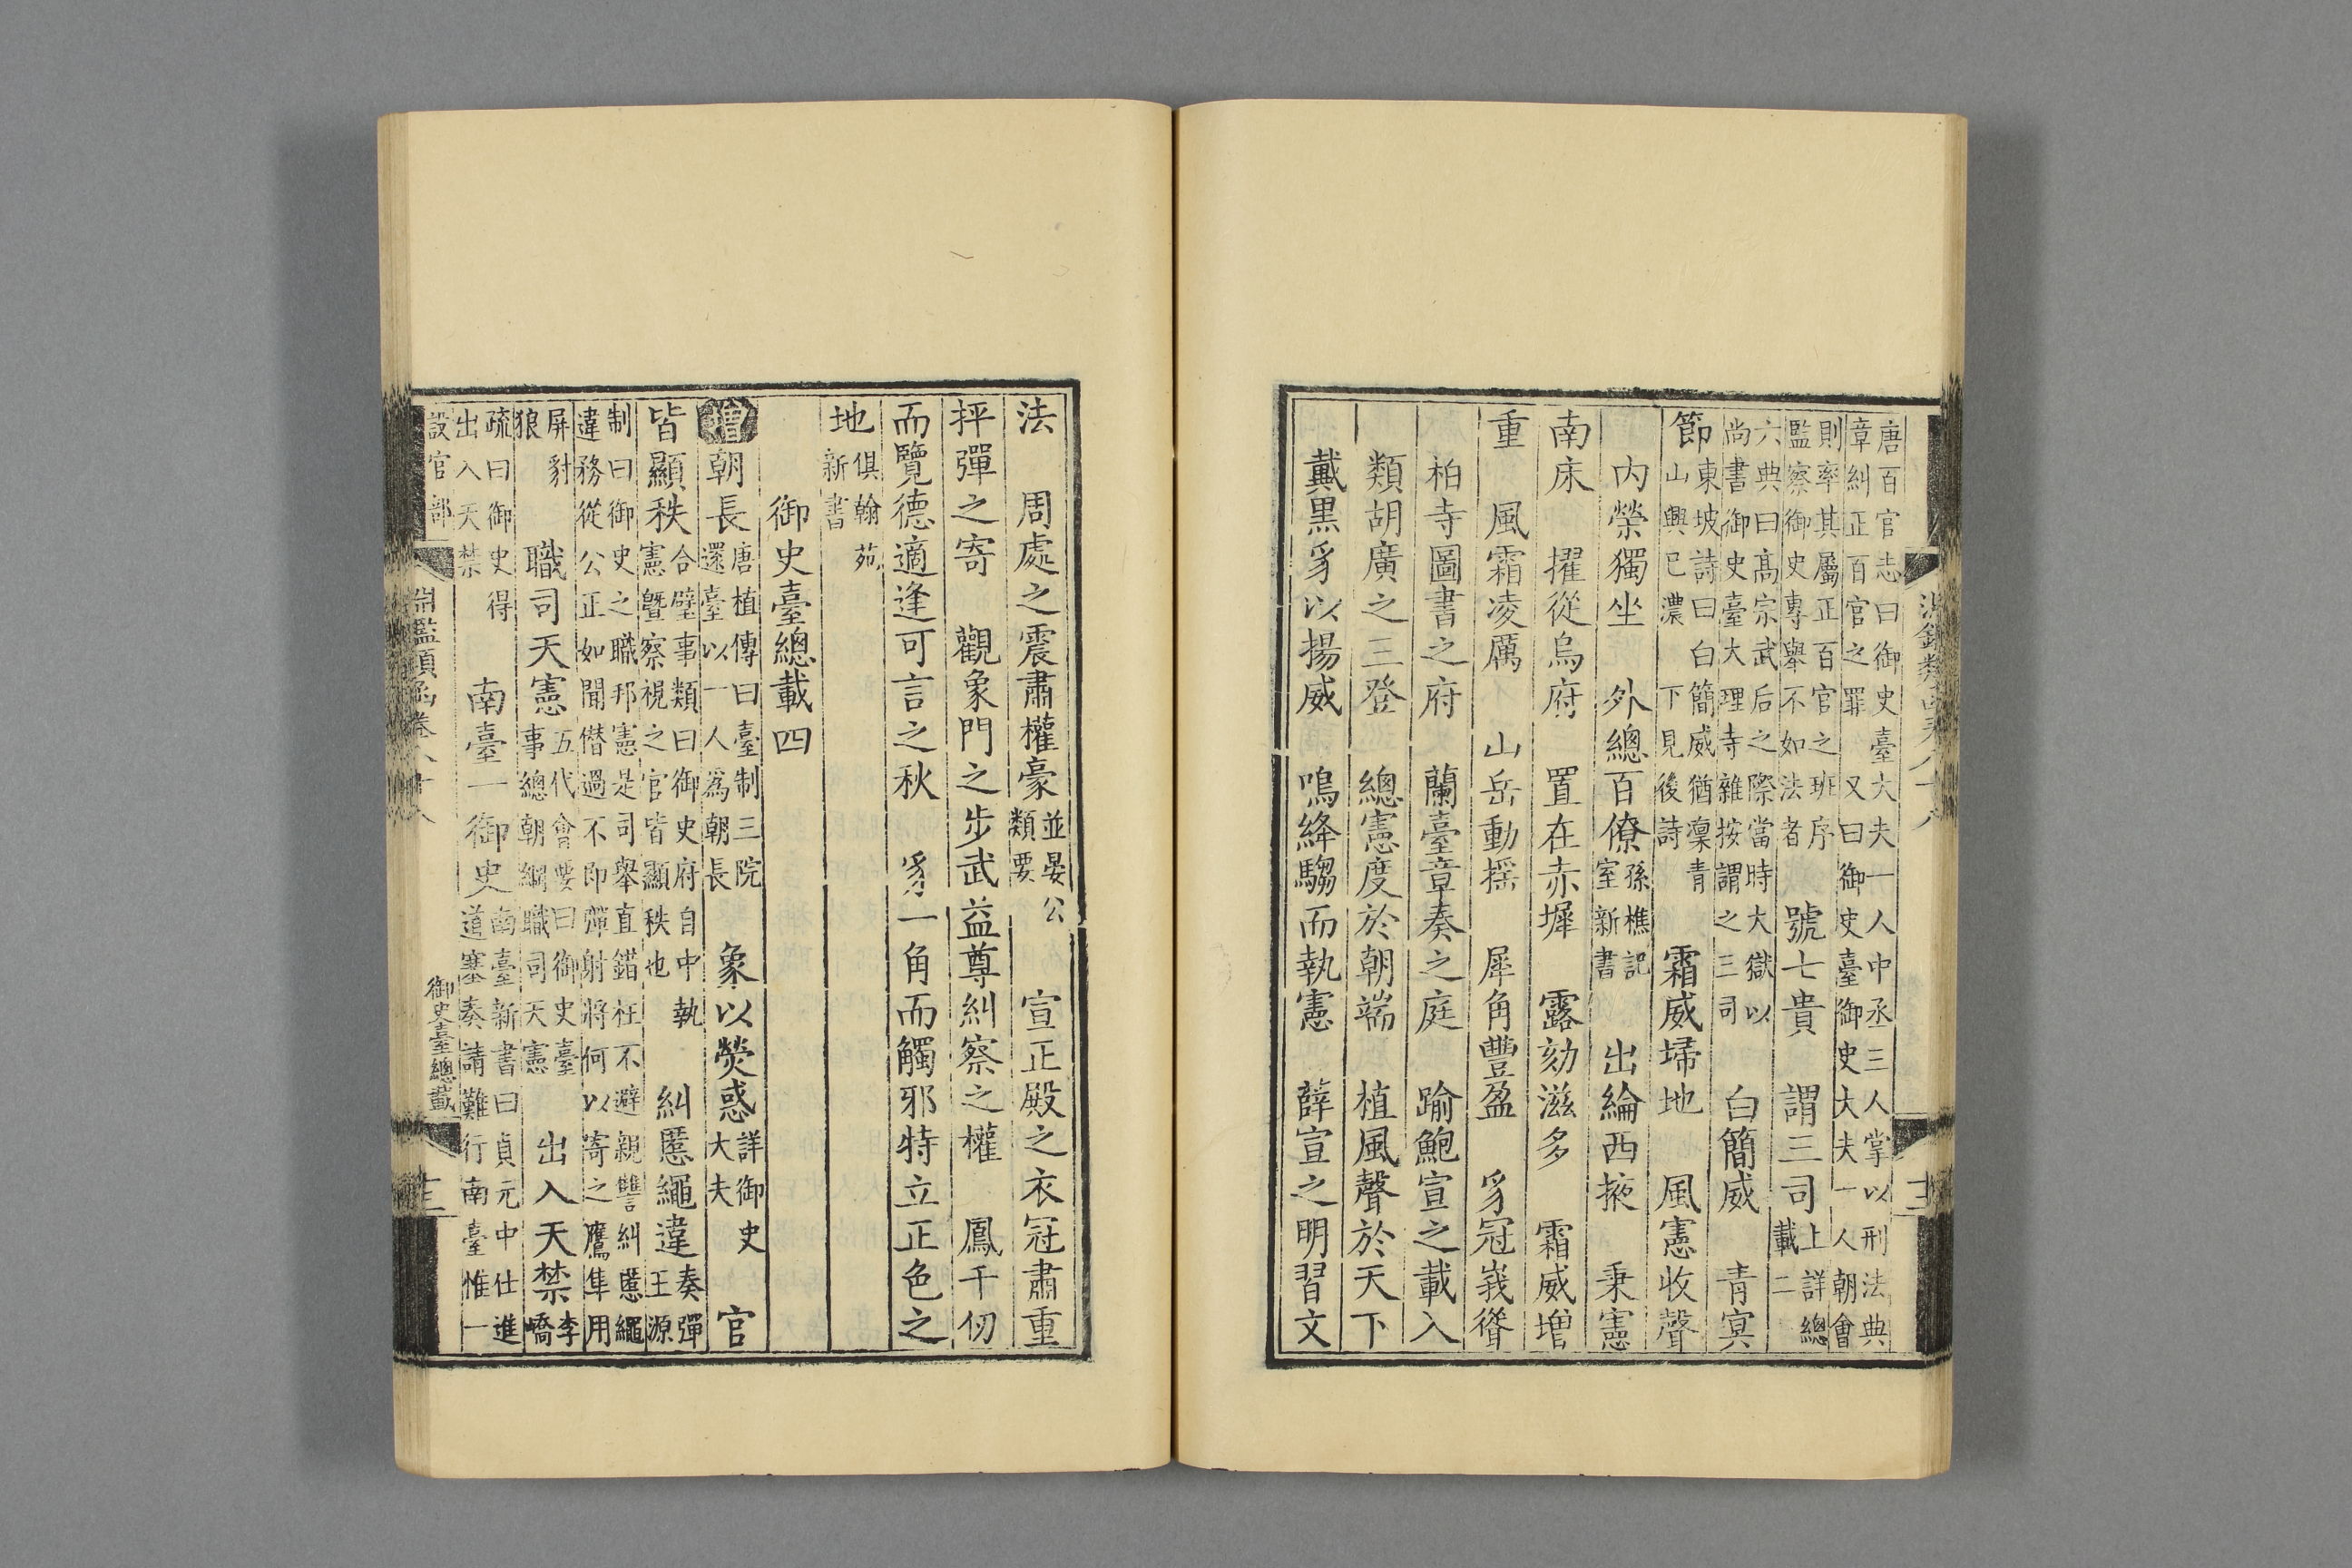 唐百官志曰御史臺大夫一人中丞三人掌以刑法典
章糾正百官之罪 又曰御史臺御史大夫一人朝會
則率其屬正百官之班序
監察御史專舉不如法者 號七貴 謂三司 上詳總
載二
六典曰髙宗武后之際當時大獄以
尚書御史臺大理寺雜按謂之三司 白簡威 青㝠
節 東坡詩曰白簡威猶凜青
山興已濃 下見後詩 霜威埽地 風憲收聲
内榮獨坐 外總百僚 孫樵記
室新書 出綸西掖 秉憲
南床 擢從烏府 置在赤墀 露劾滋多 霜威增
重 風霜凌厲 山岳動摇 犀角豐盈 豸冠峩聳
柏寺圖書之府 蘭臺章奏之庭 踰鮑宣之載入
類胡廣之三登 總憲度於朝端 植風聲於天下
戴黒豸以揚威 嗚絳騶而執憲 薛宣之明習文
法 周處之震肅權豪 並晏公
類要 宣正殿之衣冠肅重
抨彈之寄 觀象門之步武益尊糾察之權 鳳千仞
而覽德適逢可言之秋 豸一角而觸邪特立正色之
地 俱翰苑
新書
御史臺總載四
增朝長 唐植傳曰臺制三院
還臺以一人為朝長 象以熒惑 詳御史
大夫 官
皆顯秩 合璧事類曰御史府自中執
憲曁察視之官皆顯秩也 糾慝繩違 奏彈
王源
制曰御史之職邦憲是司舉直錯枉不避親讐糾慝繩
違務從公正如聞僭過不即彈射將何以寄之鷹隼用
屏豺
狼 職司天憲 五代會要曰御史臺
事總朝綱職司天憲 出入天禁 李
嶠
疏曰御史得
出入天禁 南臺一御史 南臺新書曰貞元中仕進
道塞奏請難行南臺惟一
設官部
御史臺總載